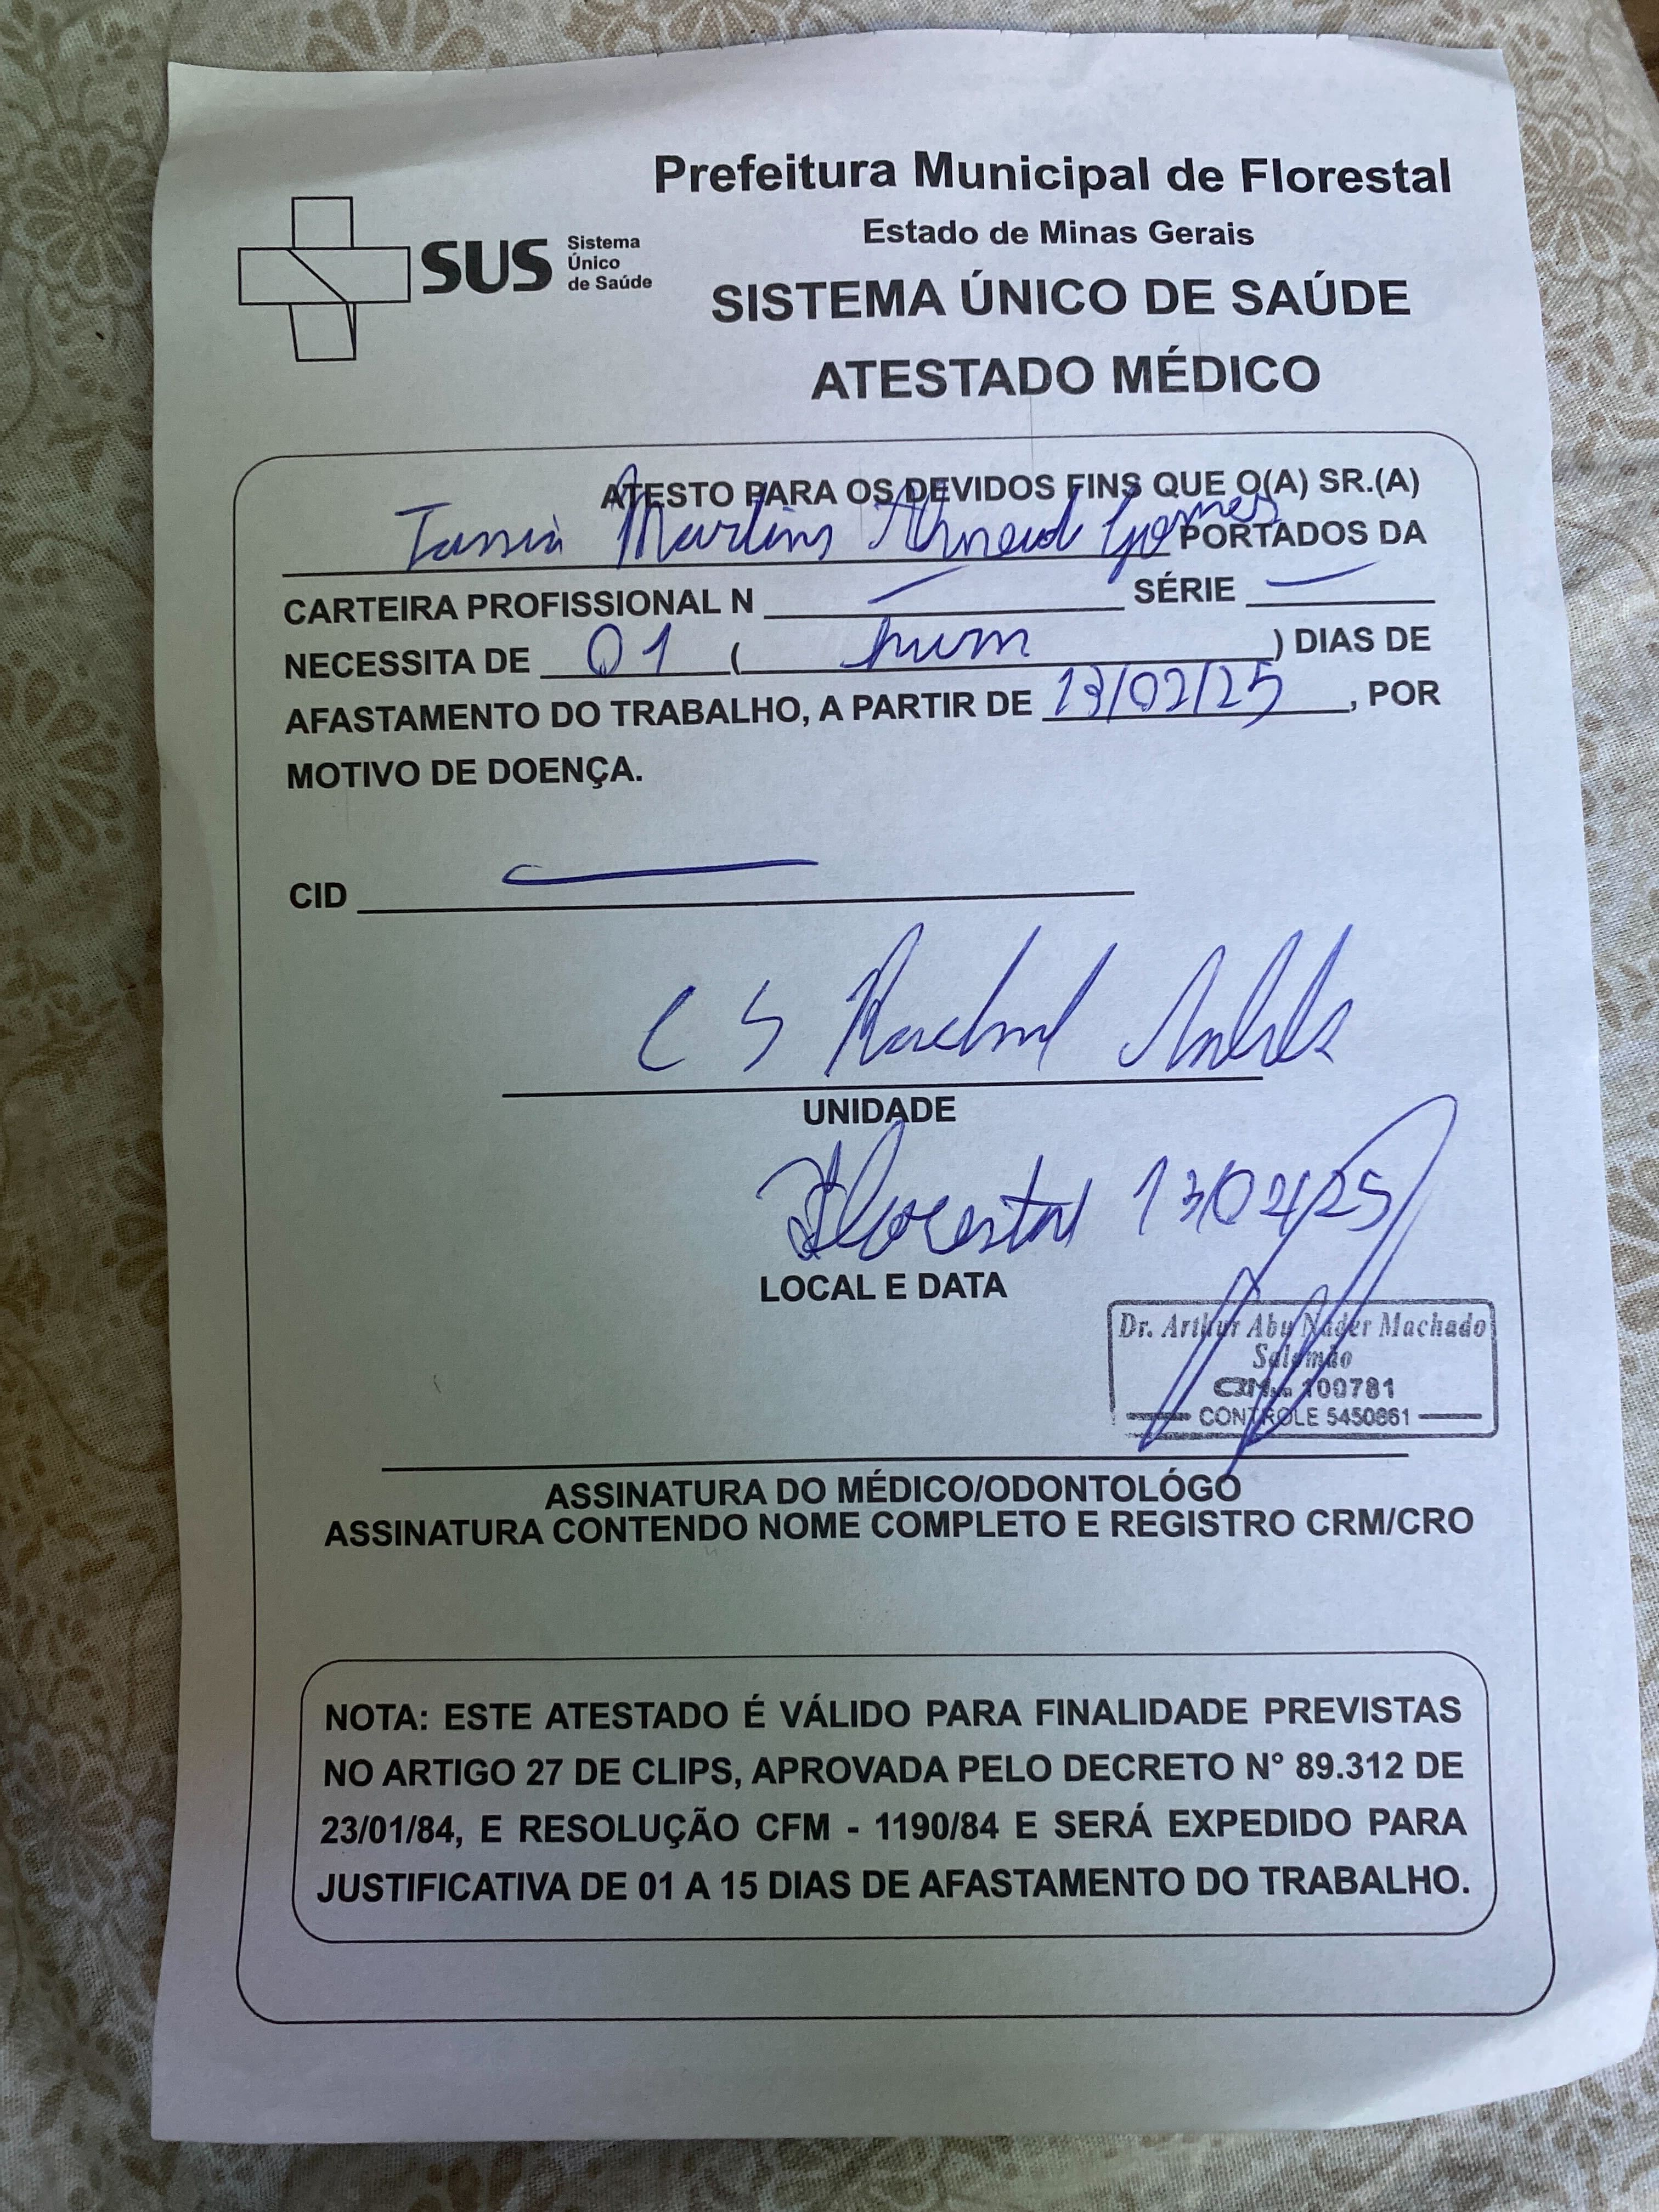 Prefeitura Municipal de Florestal
Estado de Minas Gerais
SUS Sistema
Único
de Saúde
SISTEMA ÚNICO DE SAÚDE
ATESTADO MÉDICO
ATESTO PARA OS DEVIDOS FINS QUE O(A) SR.(A)
Martins Gomes PORTADOS DA
CARTEIRA PROFISSIONAL N SÉRIE
NECESSITA DE 01 ( hum ) DIAS DE
AFASTAMENTO DO TRABALHO, A PARTIR DE 13/02/25, POR
MOTIVO DE DOENÇA.
CID
C S
UNIDADE
Florestal 13/02/25
LOCAL E DATA
Dr. Arthur Abu Nader Machado
Salomão
CRM 100781
CONTROLE 5450861
ASSINATURA DO MÉDICO/ODONTOLÓGO
ASSINATURA CONTENDO NOME COMPLETO E REGISTRO CRM/CRO
NOTA: ESTE ATESTADO É VÁLIDO PARA FINALIDADE PREVISTAS
NO ARTIGO 27 DE CLIPS, APROVADA PELO DECRETO N° 89.312 DE
23/01/84, E RESOLUÇÃO CFM - 1190/84 E SERÁ EXPEDIDO PARA
JUSTIFICATIVA DE 01 A 15 DIAS DE AFASTAMENTO DO TRABALHO.